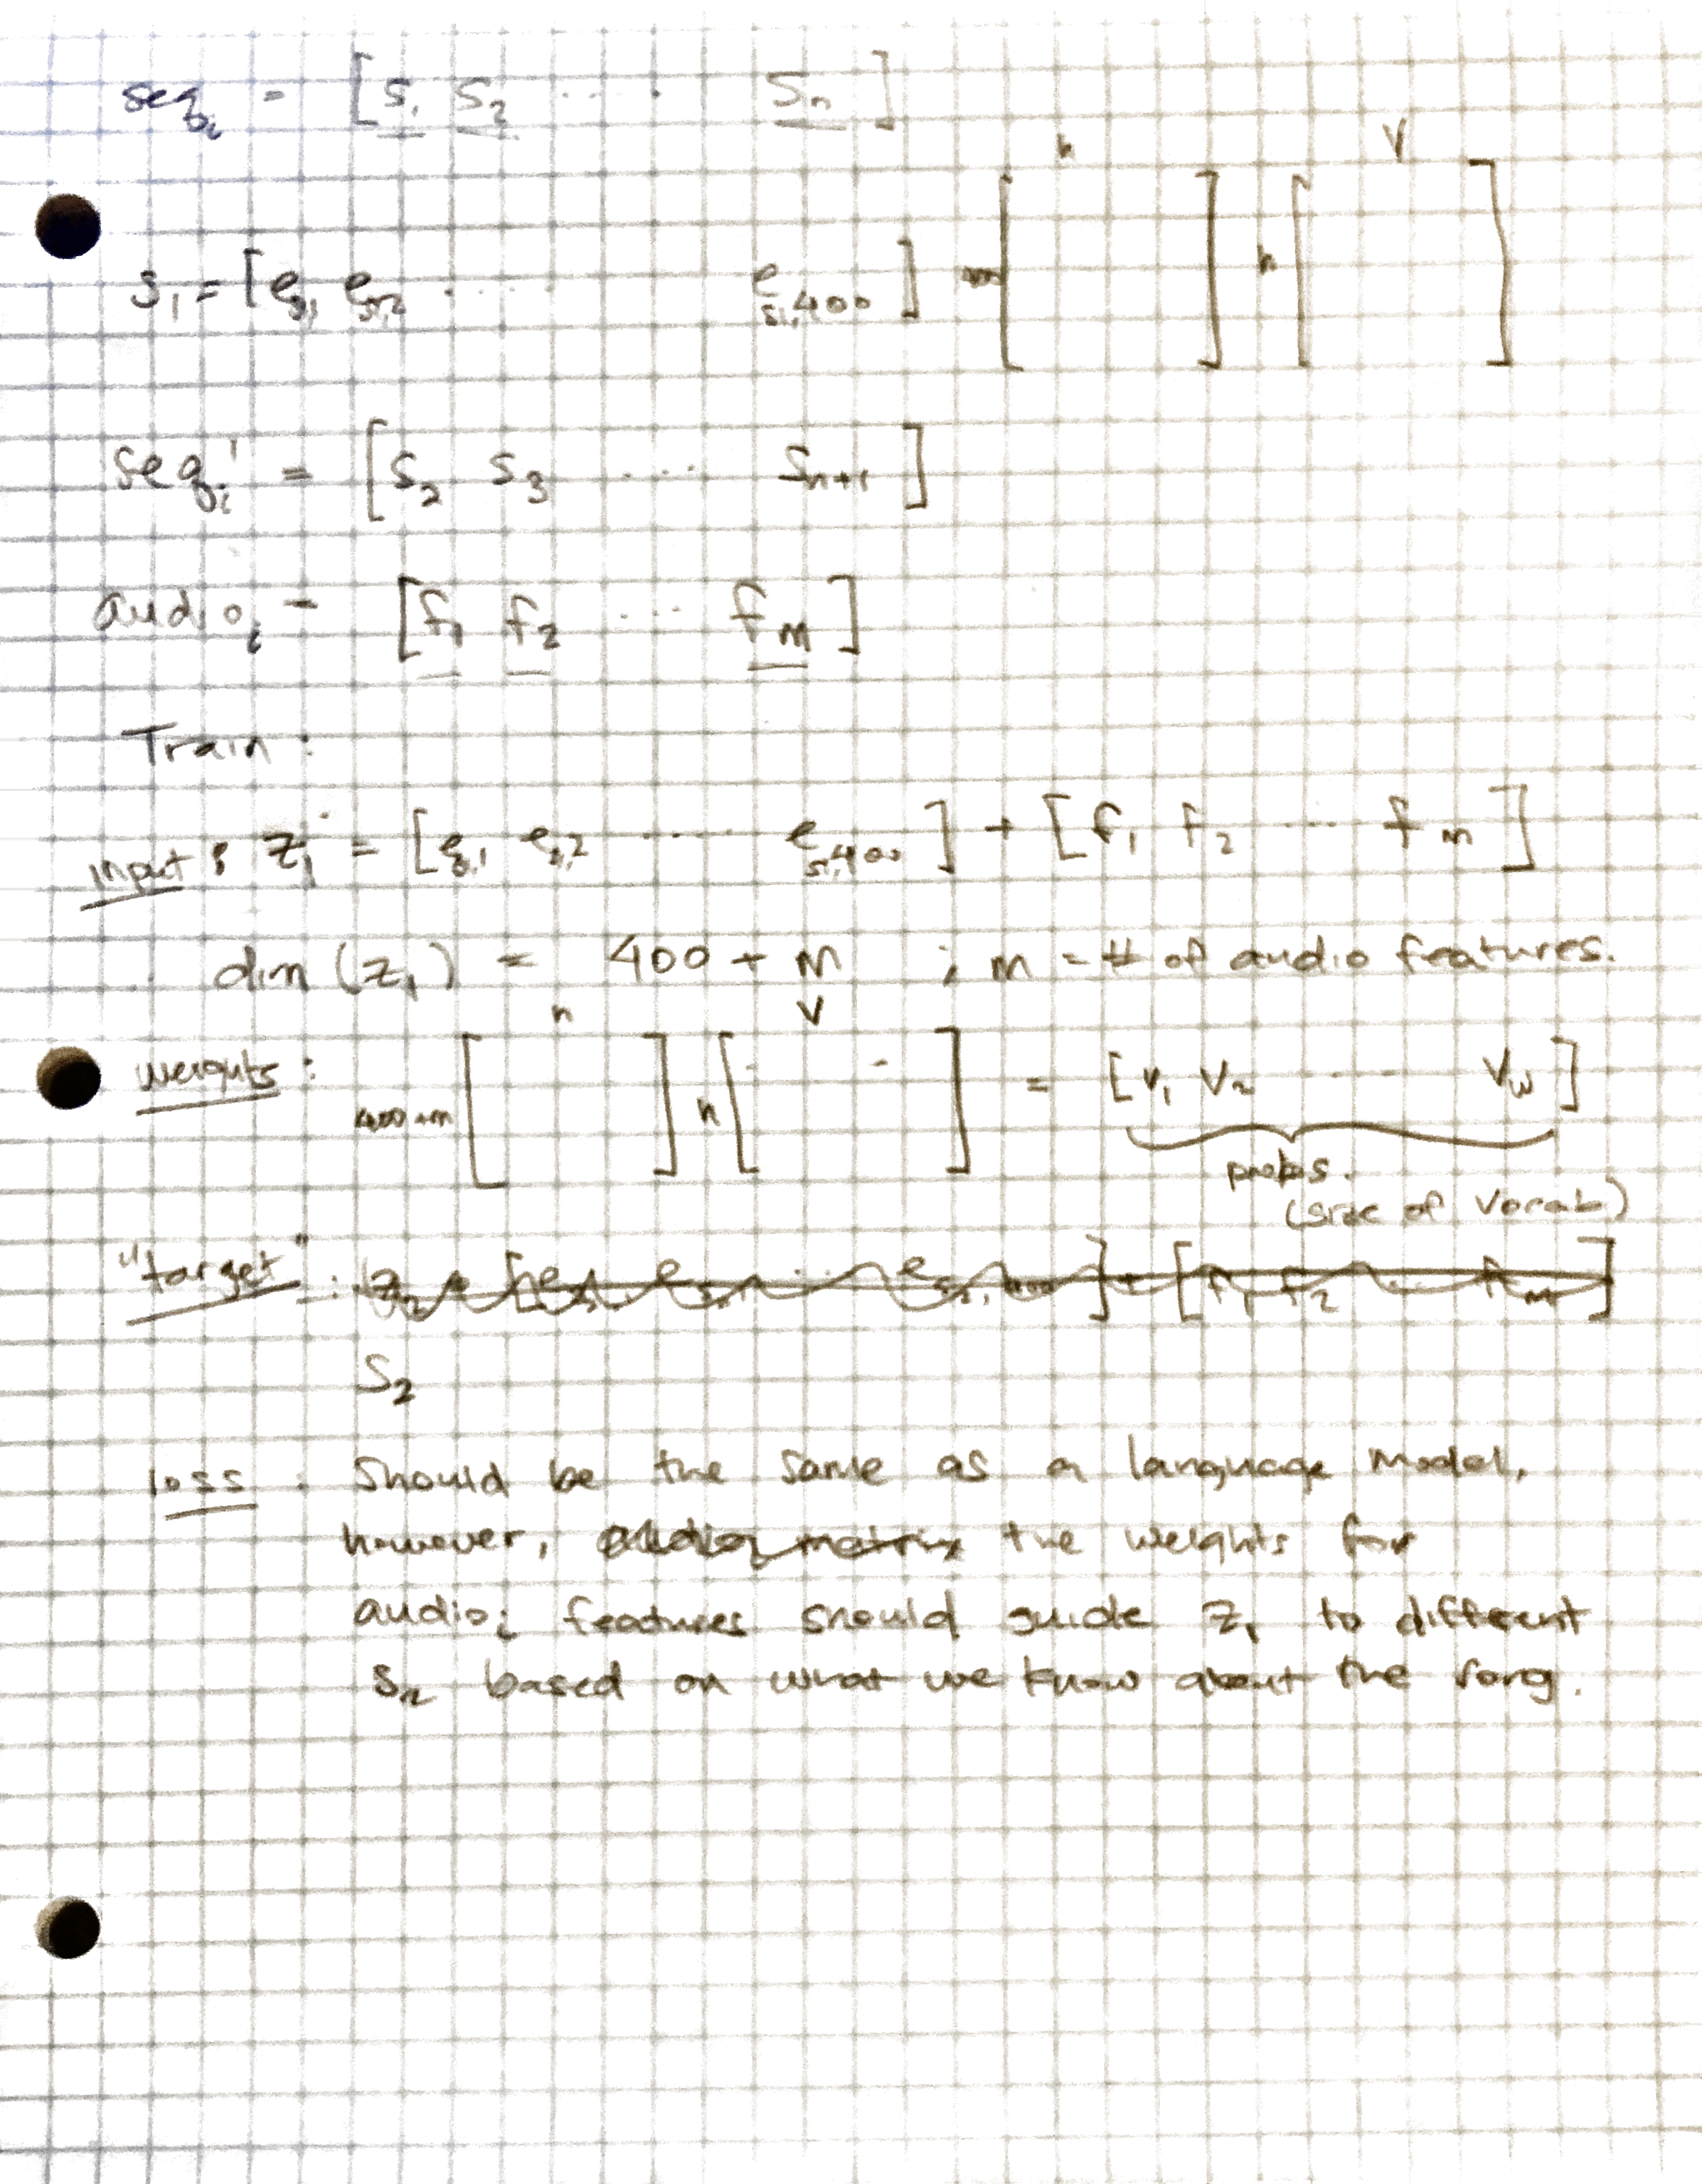 seq_i = [s_1 s_2 ..... s_n]
n V
s_1 = [e_{s_1,1} e_{s_1,2} ...... e_{s_1,400}] m[ ] n[ ]
seq_i' = [s_2 s_3 .... s_{n+1}]
audio_i = [f_1 f_2 .... f_m]
Train :
input : z_1 = [e_{s_1,1} e_{s_1,2} ..... e_{s_1,400}] + [f_1 f_2 ... f_m]
dim (z_1) = 400 + m ; m = # of audio features.
n V
weights : 400+m [ ] n [ ] = [v_1 v_2 ..... v_w]
probs.
(size of vocab)
"target" : z_2 = [e e ... e] + [f_1 f_2 ... f_m]
s_2
loss : Should be the same as a language model,
however, the weights for
audio_i features should guide z_1 to different
s_2 based on what we know about the song.